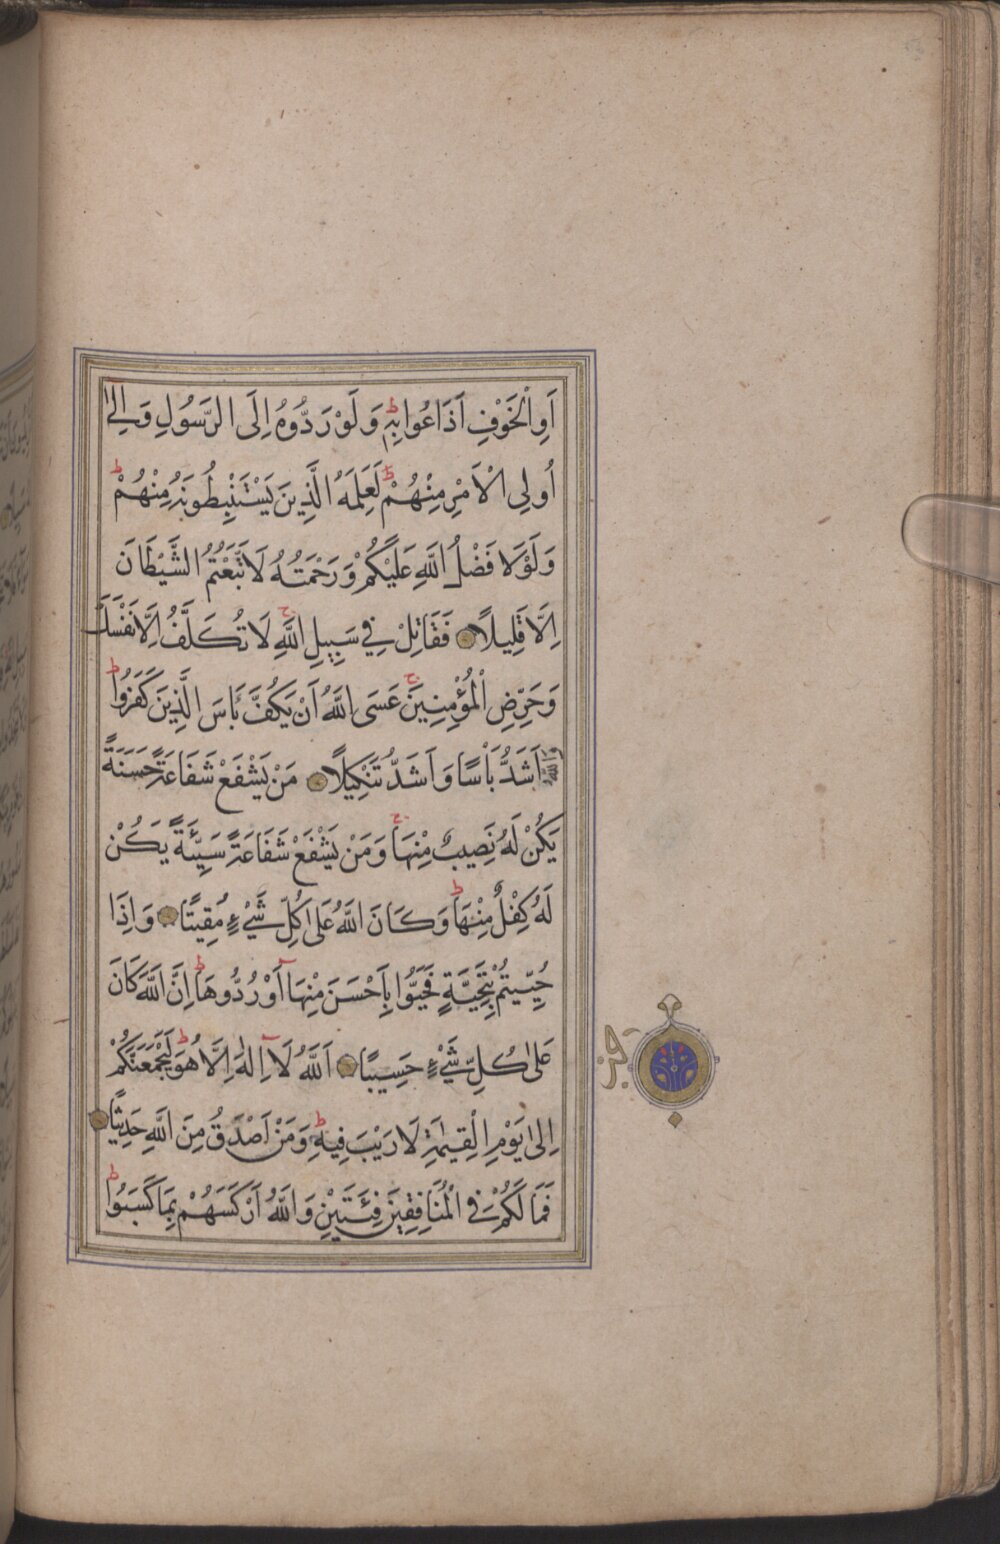 اَوِالْخَوْفِ اَذَاعُوا بِهِ ط وَلَوْ رَدُّوهُ اِلَى الرَّسُولِ وَاِلٰٓى
اُولِى الْاَمْرِ مِنْهُمْ ط لَعَلِمَهُ الَّذِينَ يَسْتَنْبِطُونَهُ مِنْهُمْ ط
وَلَوْلَا فَضْلُ اللّٰهِ عَلَيْكُمْ وَرَحْمَتُهُ لَاتَّبَعْتُمُ الشَّيْطَانَ
اِلَّا قَلِيلًا فَقَاتِلْ فِي سَبِيلِ اللّٰهِ ج لَا تُكَلَّفُ اِلَّا نَفْسَكَ
وَحَرِّضِ الْمُؤْمِنِينَ ج عَسَى اللّٰهُ اَنْ يَكُفَّ بَاْسَ الَّذِينَ كَفَرُوا ط
وَاللّٰهُ اَشَدُّ بَاْسًا وَاَشَدُّ تَنْكِيلًا مَنْ يَشْفَعْ شَفَاعَةً حَسَنَةً
يَكُنْ لَهُ نَصِيبٌ مِنْهَا ج وَمَنْ يَشْفَعْ شَفَاعَةً سَيِّئَةً يَكُنْ
لَهُ كِفْلٌ مِنْهَا ط وَكَانَ اللّٰهُ عَلٰى كُلِّ شَيْءٍ مُقِيتًا وَاِذَا
حُيِّيتُمْ بِتَحِيَّةٍ فَحَيُّوا بِاَحْسَنَ مِنْهَآ اَوْ رُدُّوهَا ط اِنَّ اللّٰهَ كَانَ
عَلٰى كُلِّ شَيْءٍ حَسِيبًا اَللّٰهُ لَآ اِلٰهَ اِلَّا هُوَ ط لَيَجْمَعَنَّكُمْ
اِلٰى يَوْمِ الْقِيٰمَةِ لَا رَيْبَ فِيهِ ط وَمَنْ اَصْدَقُ مِنَ اللّٰهِ حَدِيثًا
فَمَا لَكُمْ فِي الْمُنَافِقِينَ فِئَتَيْنِ وَاللّٰهُ اَرْكَسَهُمْ بِمَا كَسَبُوا ط
حزب